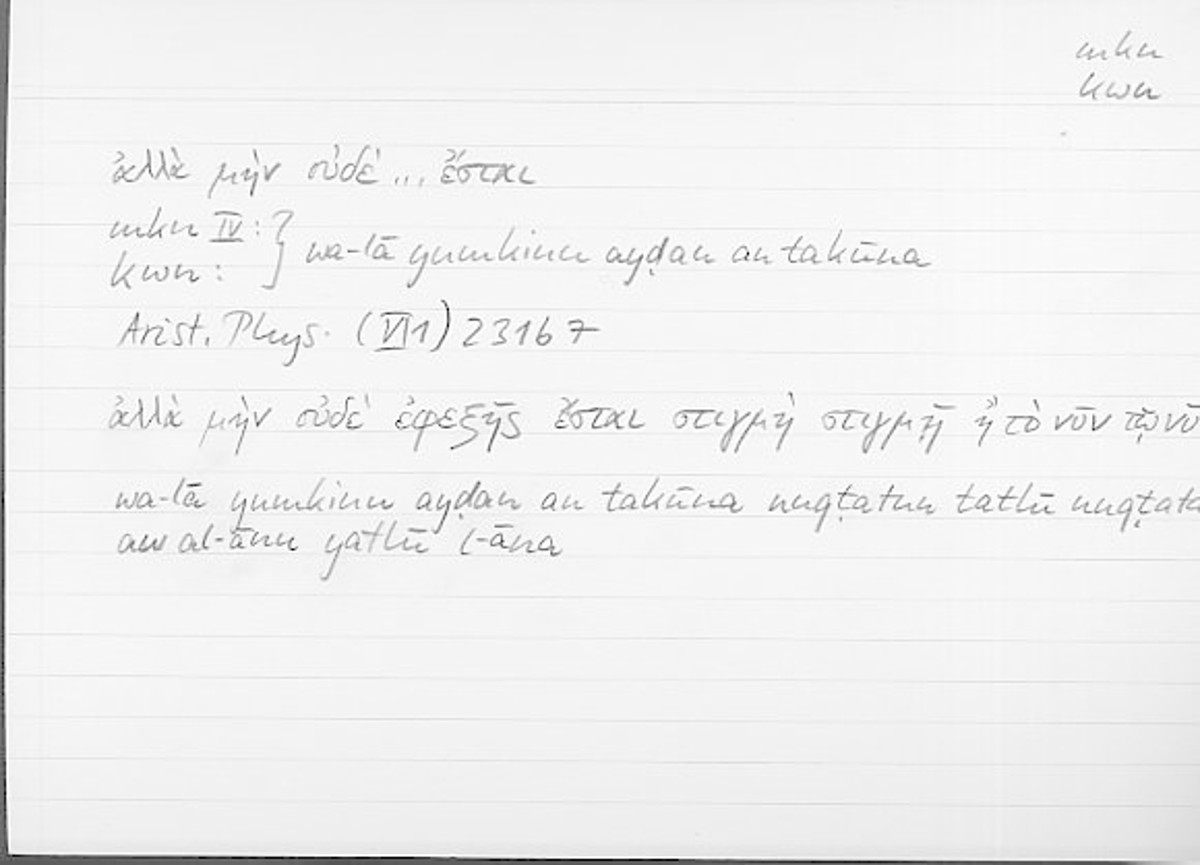 mkn
kwn
ἀλλὰ μὴν οὐδέ ... ἔσται
mkn IV: }
kwn : } wa-lā yumkinu ayḍan an takūna
Arist. Phys. (VI 1) 231b 7
ἀλλὰ μὴν οὐδὲ ἐφεξῆς ἔσται στιγμὴ στιγμῇ ἢ τὸ νῦν τῷ νῦ
wa-lā yumkinu ayḍan an takūna nuqṭatun tatlū nuqṭata
aw al-ānu yatlū l-āna